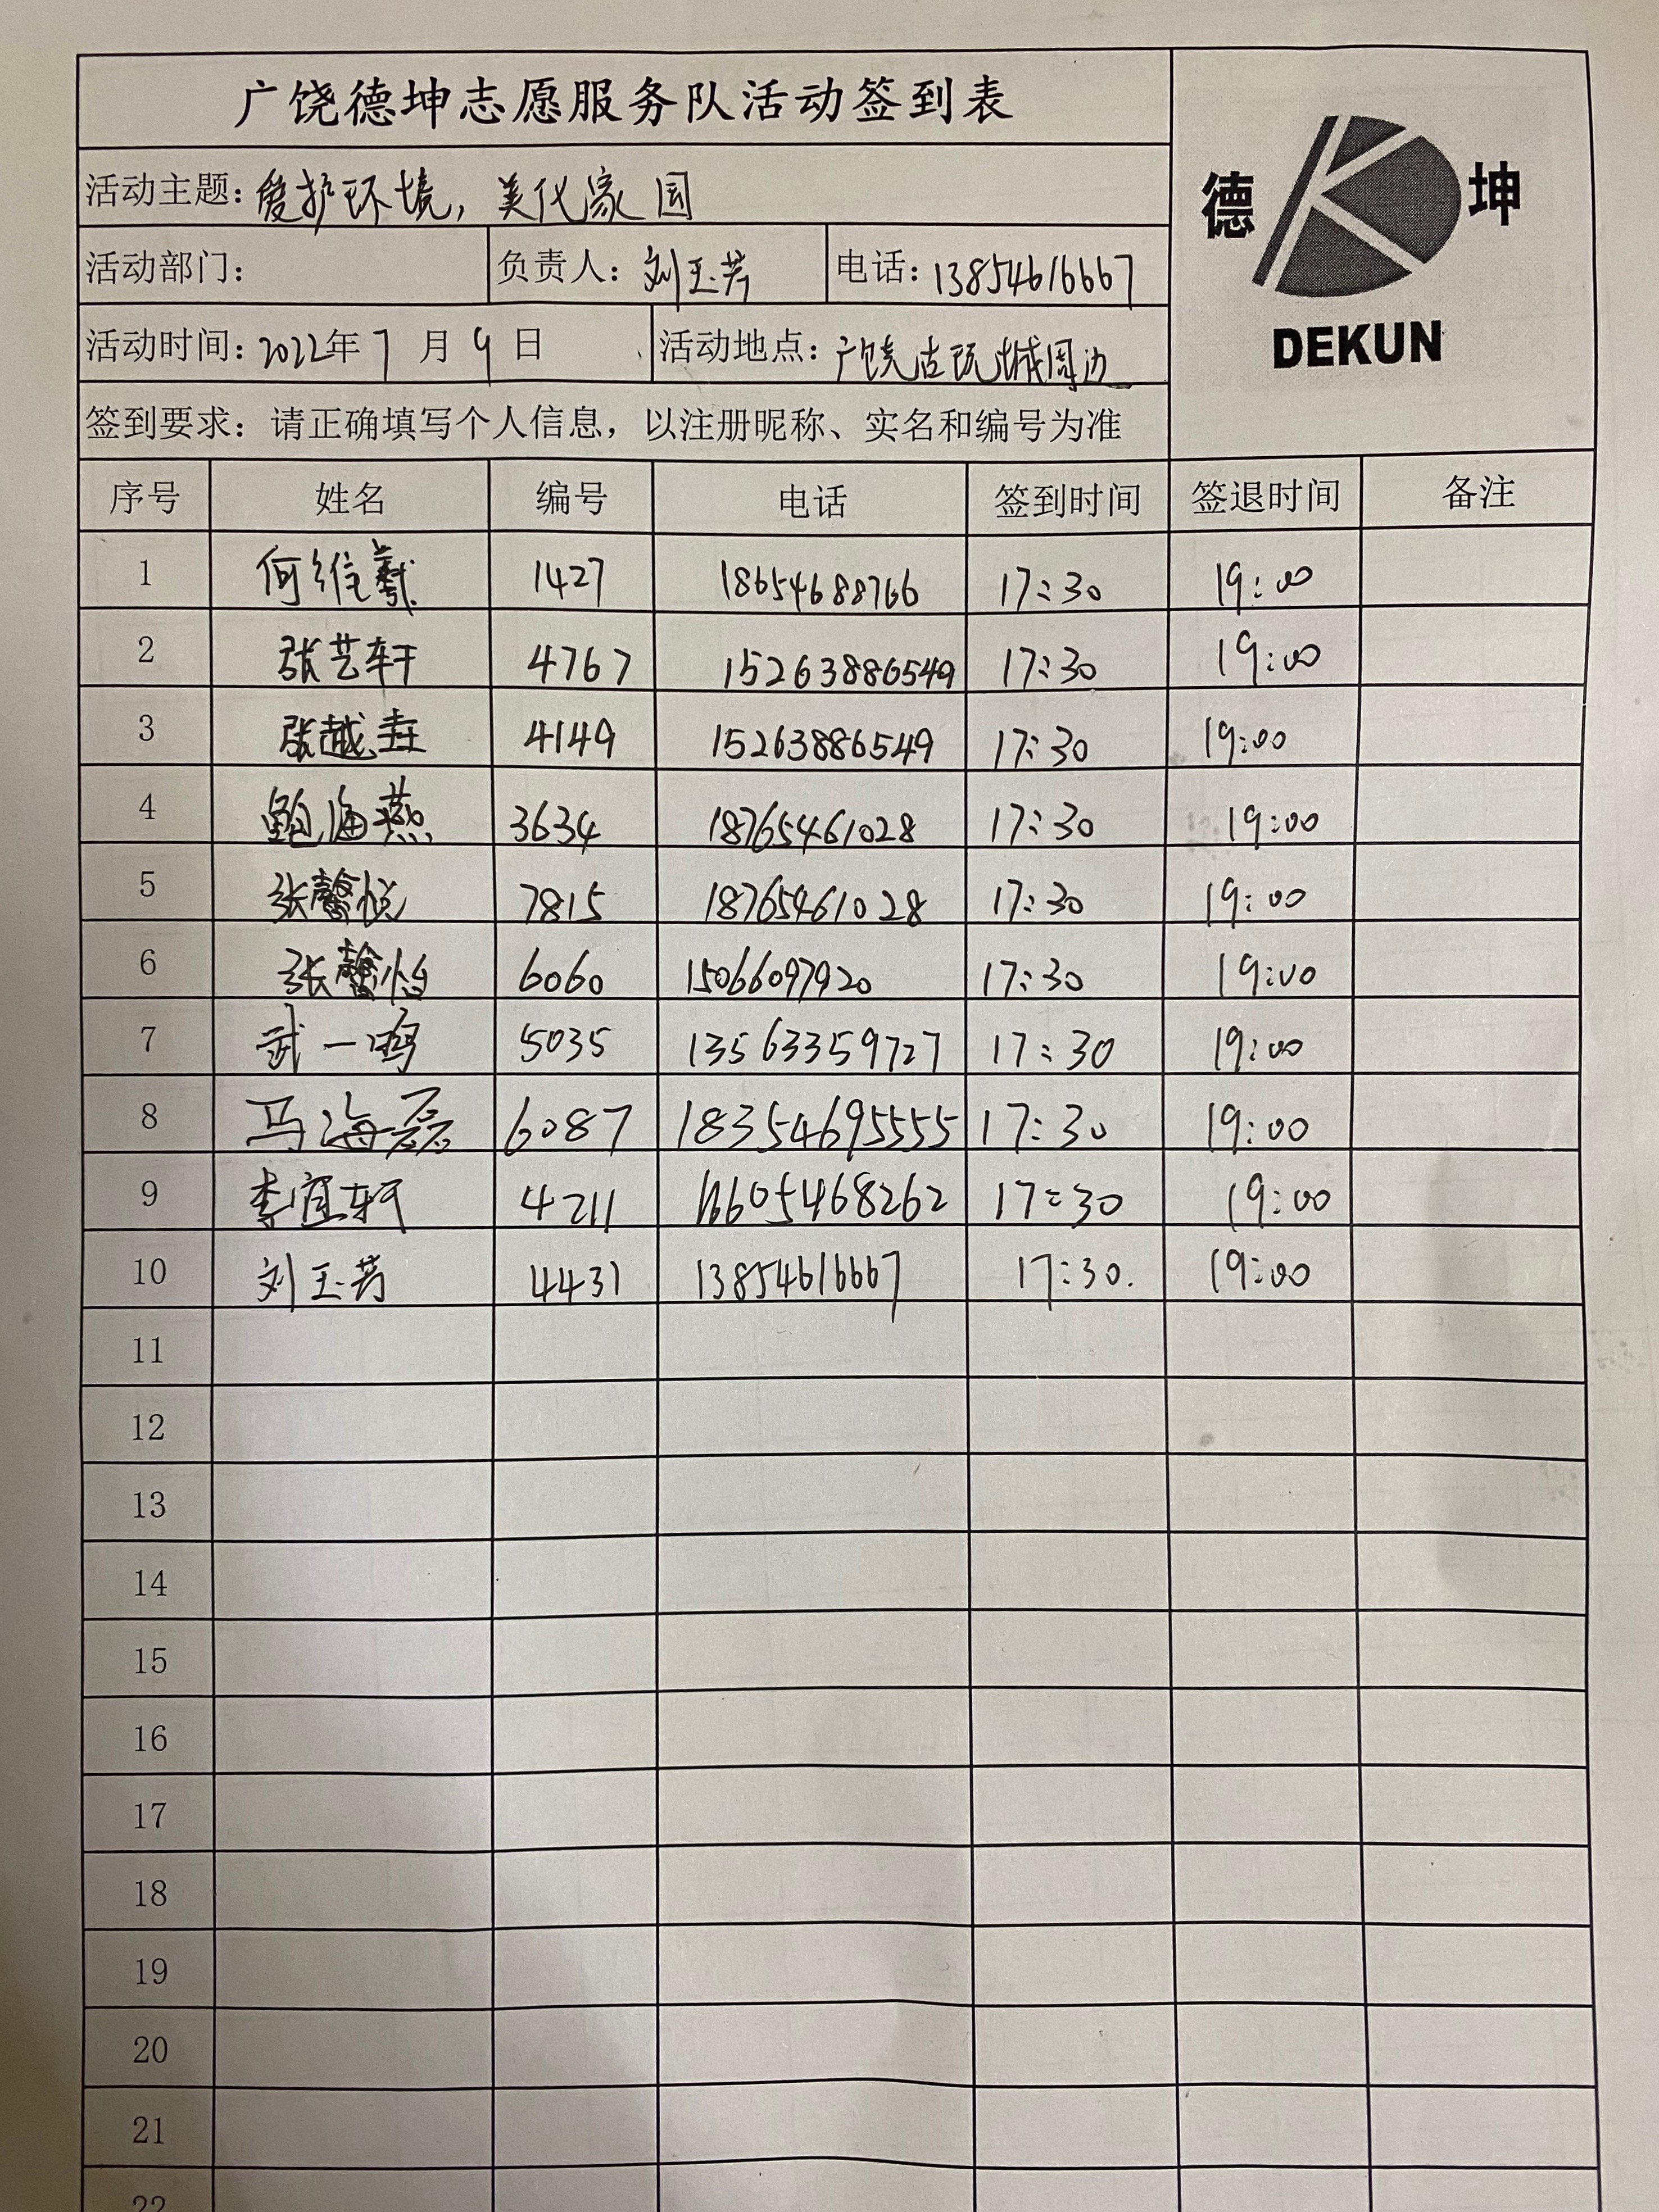 广饶德坤志愿服务队活动签到表
德 坤
DEKUN
活动主题：爱护环境，美化家园
活动部门： 负责人：刘玉芳 电话：13854616667
活动时间：2022年7月9日 活动地点：广饶古玩城周边
签到要求：请正确填写个人信息，以注册昵称、实名和编号为准
序号 姓名 编号 电话 签到时间 签退时间 备注
1 何维羲 1427 18654688766 17:30 19:00
2 张艺轩 4767 15263886549 17:30 19:00
3 张越 4149 15263886549 17:30 19:00
4 鲍海燕 3634 18765461028 17:30 19:00
5 张馨悦 7815 18765461028 17:30 19:00
6 张馨怡 6060 15066097920 17:30 19:00
7 武一鸣 5035 13563359727 17:30 19:00
8 马海磊 6087 18354695555 17:30 19:00
9 李宜轩 4211 16605468262 17:30 19:00
10 刘玉芳 4431 13854616667 17:30. 19:00
11
12
13
14
15
16
17
18
19
20
21
22